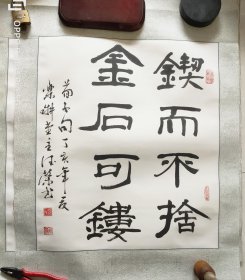 鍥而不捨
金石可鏤
荀子句丁亥年夏